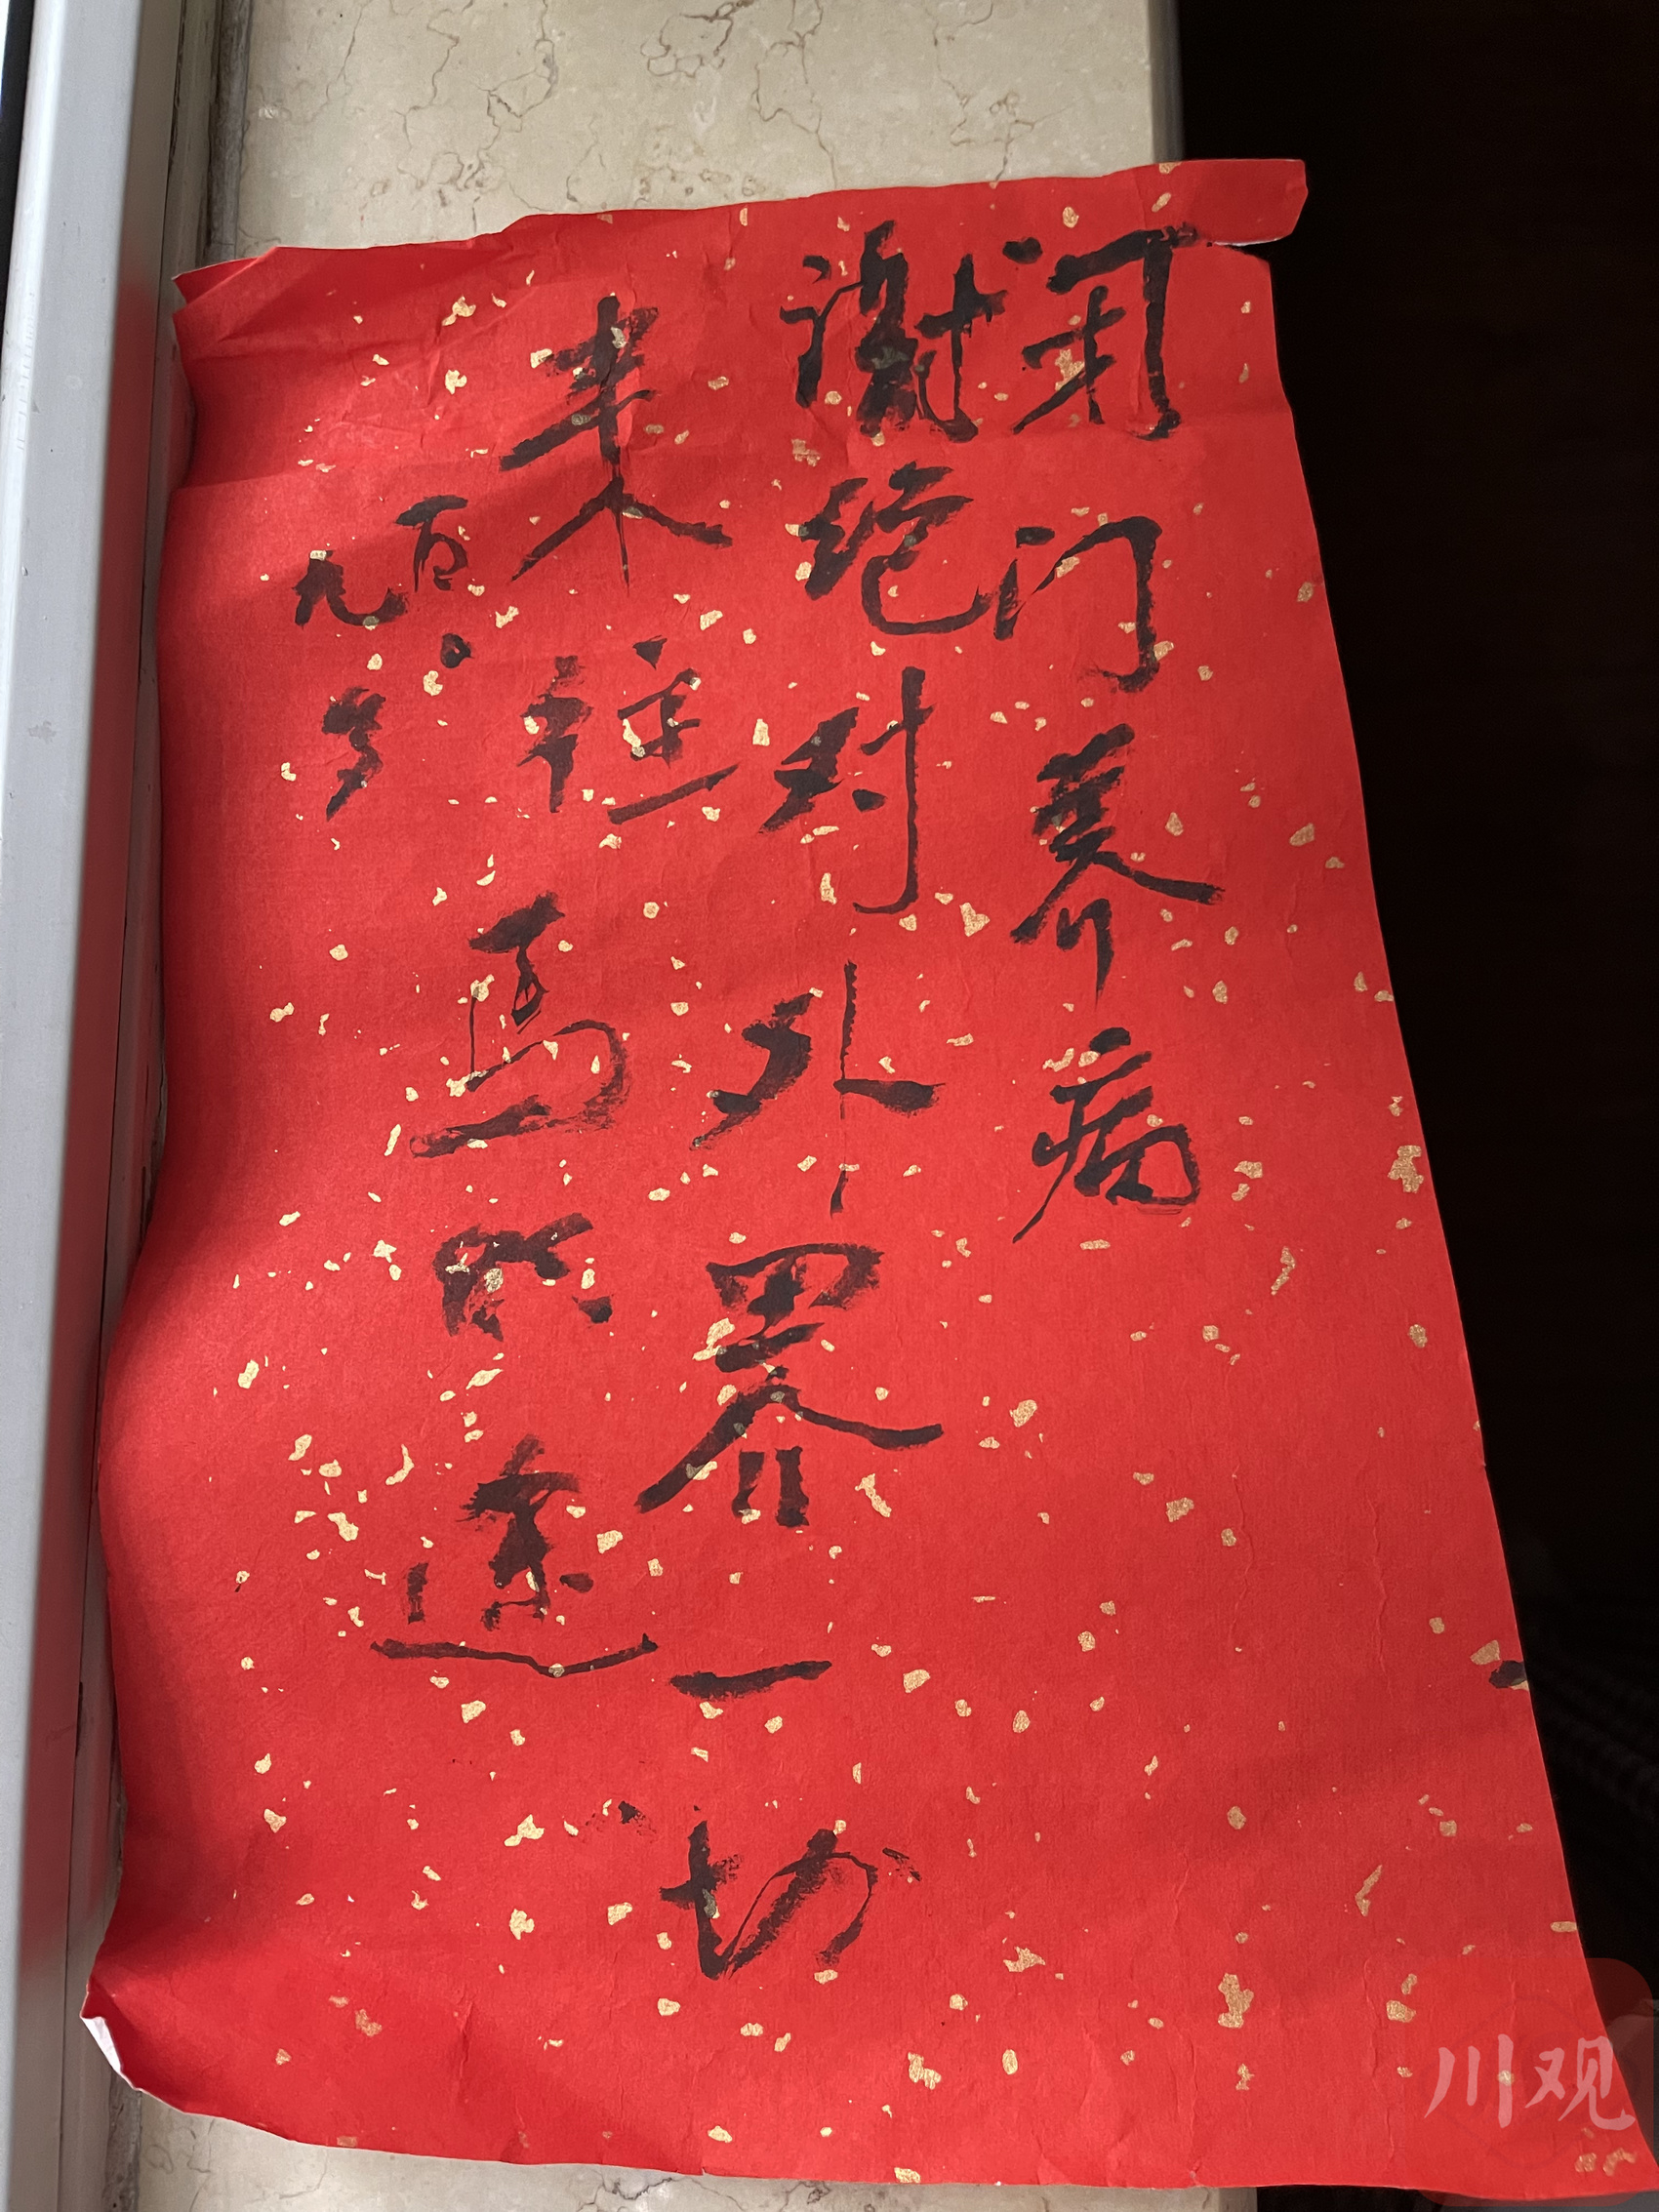 闭门养病
谢绝对外界一切
来往 马识途
百〇
九岁
川观